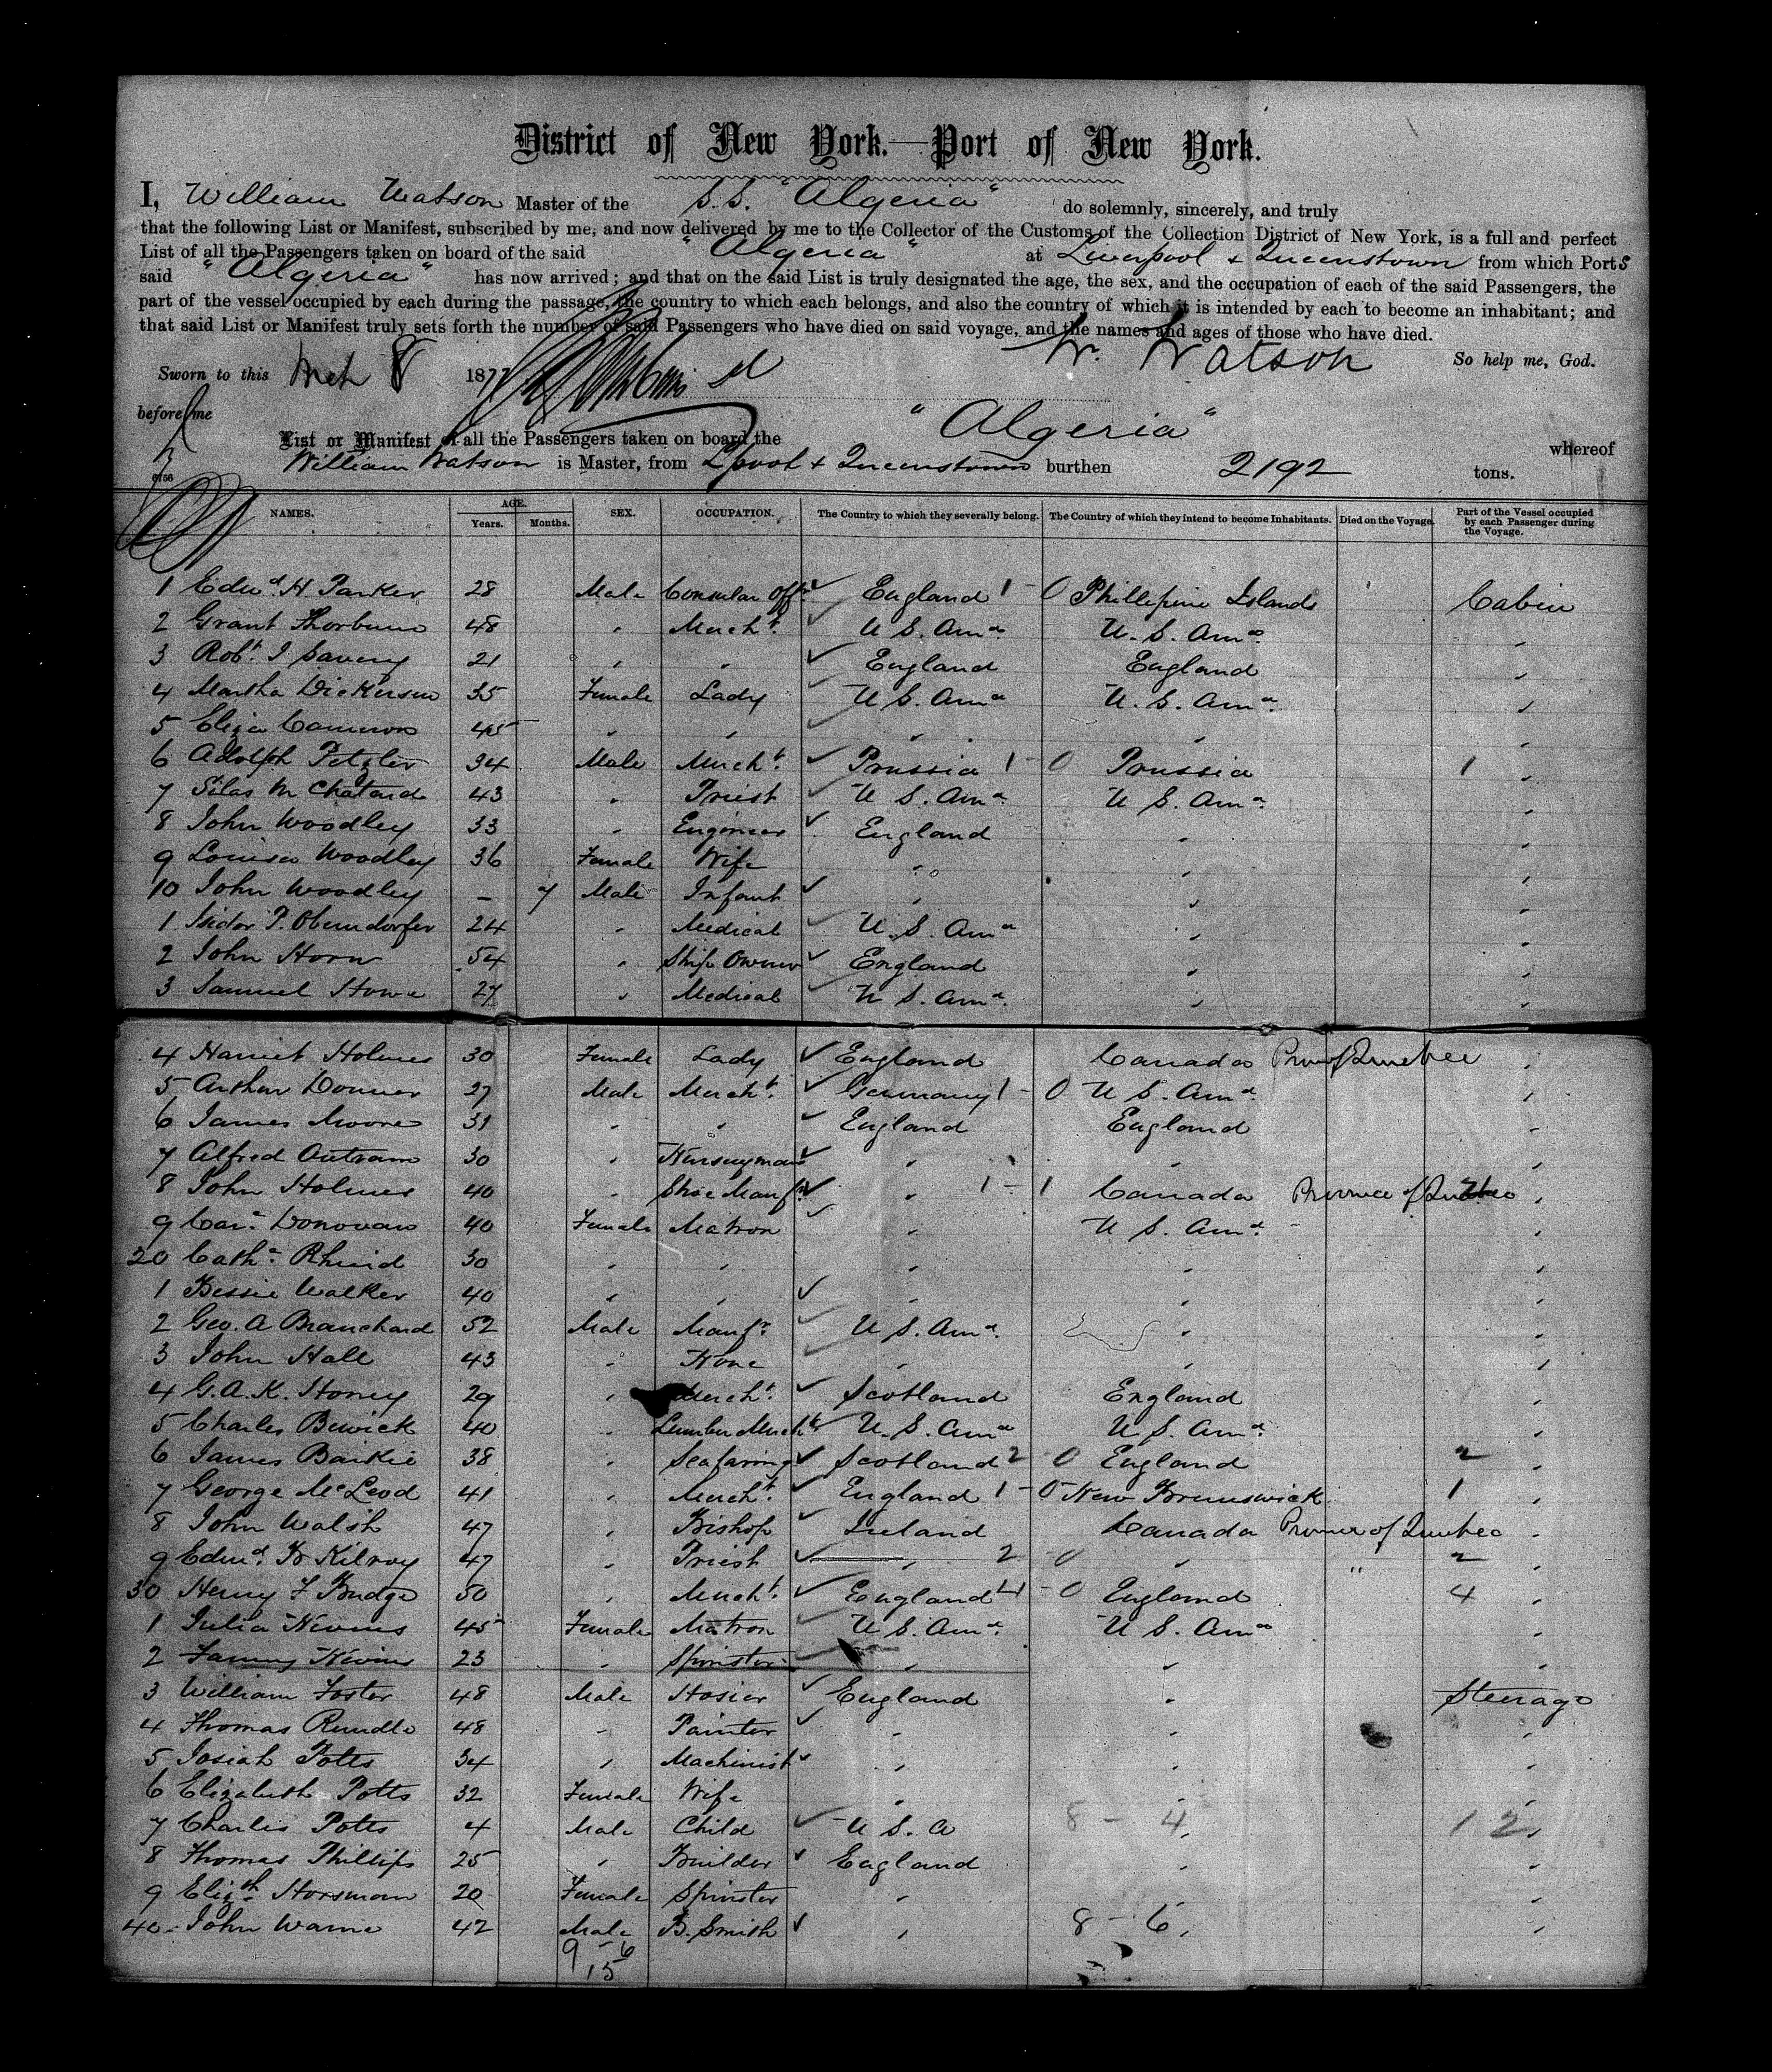 District of New York.—Port of New York.
I, William Watson Master of the S.S. "Algeria" do solemnly, sincerely, and truly
that the following List or Manifest, subscribed by me, and now delivered by me to the Collector of the Customs of the Collection District of New York, is a full and perfect
List of all the Passengers taken on board of the said "Algeria" at Liverpool & Queenstown from which Ports
said "Algeria" has now arrived; and that on the said List is truly designated the age, the sex, and the occupation of each of the said Passengers, the
part of the vessel occupied by each during the passage, the country to which each belongs, and also the country of which it is intended by each to become an inhabitant; and
that said List or Manifest truly sets forth the number of said Passengers who have died on said voyage, and the names and ages of those who have died.
Sworn to this Mch 8 187 W. Watson So help me, God.
before me
List or Manifest of all the Passengers taken on board the "Algeria" whereof
William Watson is Master, from L'pool & Queenstown burthen 2192 tons.
6756
NAMES. AGE. Years. Months. SEX. OCCUPATION. The Country to which they severally belong. The Country of which they intend to become Inhabitants. Died on the Voyage. Part of the Vessel occupied by each Passenger during the Voyage.
1 Edwd. H. Parker 28 Male Consular Offr. England 1 - 0 Phillipine Islands Cabin
2 Grant Thorburn 48 " Mercht. U S. Ama. U. S. Ama. "
3 Robt. J Savery 21 " " England England "
4 Martha Dickerson 35 Female Lady U S. Ama U. S. Ama. "
5 Eliza Cameron 45 " " " " "
6 Adolph Petzler 34 Male Mercht. Prussia 1 - 0 Prussia 1 "
7 Silas M Chatard 43 " Priest U S. Ama. U S. Ama. "
8 John Woodley 33 " Engineer England " "
9 Louisa Woodley 36 Female Wife " " "
10 John Woodley - 7 Male Infant " " "
1 Isidor P. Oberndorfer 24 " Medical U. S. Ama " "
2 John Horn 54 " Ship Owner England " "
3 Samuel Howe 27 " Medical U S. Ama. " "
4 Harriet Holmes 30 Female Lady England Canada Prov of Quebec "
5 Arthur Donner 27 Male Mercht. Germany 1 - 0 U S. Ama. "
6 James Moore 31 " " England England "
7 Alfred Outram 30 " Nurseyman " " "
8 John Holmes 40 " Shoe Manfr. " 1 - 1 Canada Province of Quebec "
9 Cara. Donovan 40 Female Matron " U S. Ama. "
20 Catha. Rhind 30 " " " " "
1 Bessie Walker 40 " " " " "
2 Geo. A Branchard 52 Male Manfr. U S. Ama. " "
3 John Hall 43 " None " " "
4 G. A. K. Honey 29 " Mercht. Scotland England "
5 Charles Bewick 40 " Lumber Mercht U. S. Ama U S. Ama. "
6 James Baikie 38 " Seafaring Scotland 2 - 0 England 2 "
7 George McLeod 41 " Mercht. England 1 - 0 New Brunswick 1 "
8 John Walsh 47 " Bishop Ireland Canada Province of Quebec "
9 Edmd. B Kilroy 47 " Priest " 2 - 0 " " 2 "
30 Henry F Budge 50 " Mercht. England 4 - 0 England 4 "
1 Julia Nevins 45 Female Matron U S. Ama. U S. Ama "
2 Fanny Nevins 23 " Spinster " " "
3 William Foster 48 Male Hosier England " Steerage
4 Thomas Rundle 48 " Painter " " "
5 Josiah Potts 34 " Machinist " " "
6 Elizabeth Potts 32 Female Wife " " "
7 Charles Potts 4 Male Child U. S. A 8 - 4 " 12 "
8 Thomas Phillips 25 " Builder England " "
9 Elizth. Horsman 20 Female Spinster " " "
40 John Warne 42 Male B. Smith " 8 - 6 " "
9 - 6
15